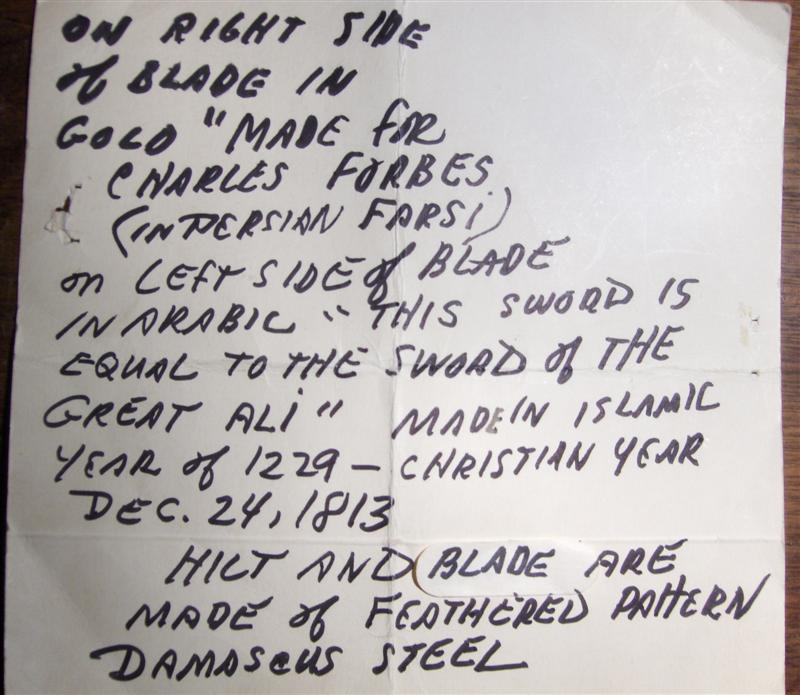 ON RIGHT SIDE
of BLADE IN
GOLD "MADE FOR
CHARLES FORBES
(IN PERSIAN FARSi)
on LEFT SIDE of BLADE
IN ARABIC "THIS SWORD IS
EQUAL TO THE SWORD of THE
GREAT ALi" MADE IN ISLAMIC
YEAR of 1229 – CHRISTIAN YEAR
DEC. 24, 1813
HILT AND BLADE ARE
MADE of FEATHERED PATTERN
DAMASCUS STEEL